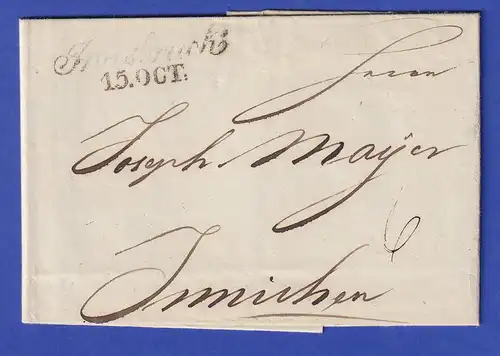 Innsbruck
15. OCT.
Herrn
Joseph Mayer
6
Innichen